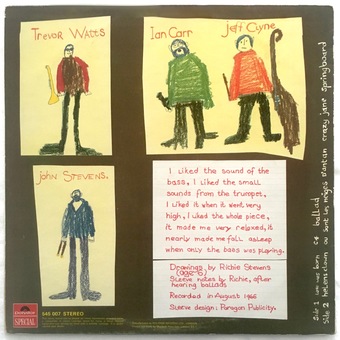 Trevor Watts
Ian Carr
Jeff Clyne
John Stevens.
I liked the sound of the
bass, I liked the small
sounds from the trumpet,
I liked it when it went very
high, I liked the whole piece,
it made me very relaxed, it
nearly made me fall asleep
when only the bass was playing.
Drawings by Richie Stevens
Sleeve notes by Richie, after
hearing ballads
Recorded in August 1966
Sleeve design: Paragon Publicity.
Side 1 ballad
Side 2 helens clown ou sont les neiges d'antan crazy jane springboard
SPECIAL
545 007 STEREO